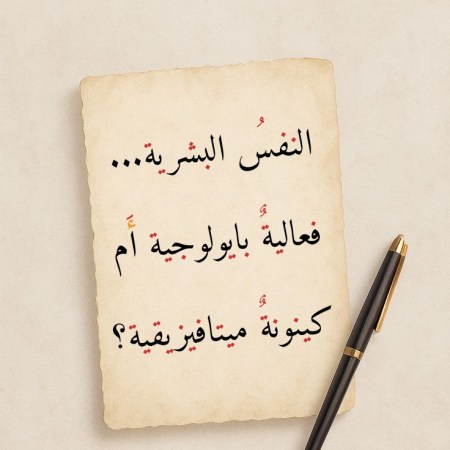 النفسُ البشرية...
فعاليةٌ بايولوجية أَم
كينونةٌ ميتافيزيقية؟